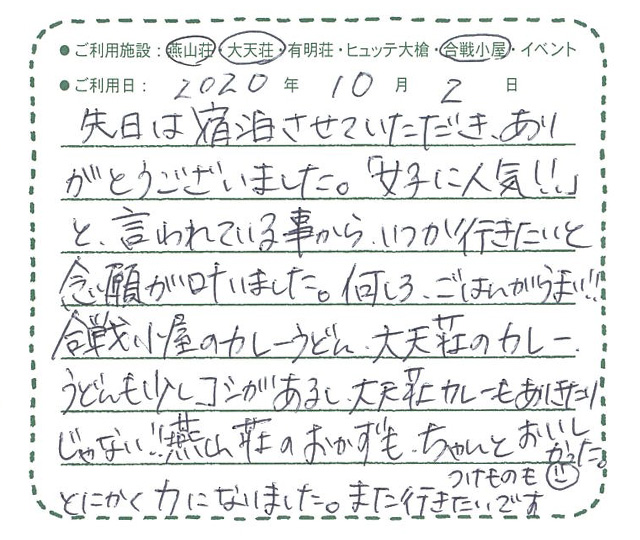 ●ご利用施設：燕山荘・大天荘・有明荘・ヒュッテ大槍・合戦小屋・イベント
●ご利用日：2020年10月2日
先日は宿泊させていただき、あり
がとうございました。「女子に人気!!」
と、言われている事から、いつか行きたいと
念願が叶いました。何しろ、ごはんがうまい!!
合戦小屋のカレーうどん、大天荘のカレー、
うどんも少しコシがあるし、大天荘カレーもありきたり
じゃない!!燕山荘のおかずも、ちゃんとおいし
かった。
つけものも
とにかく力になりました。また行きたいです